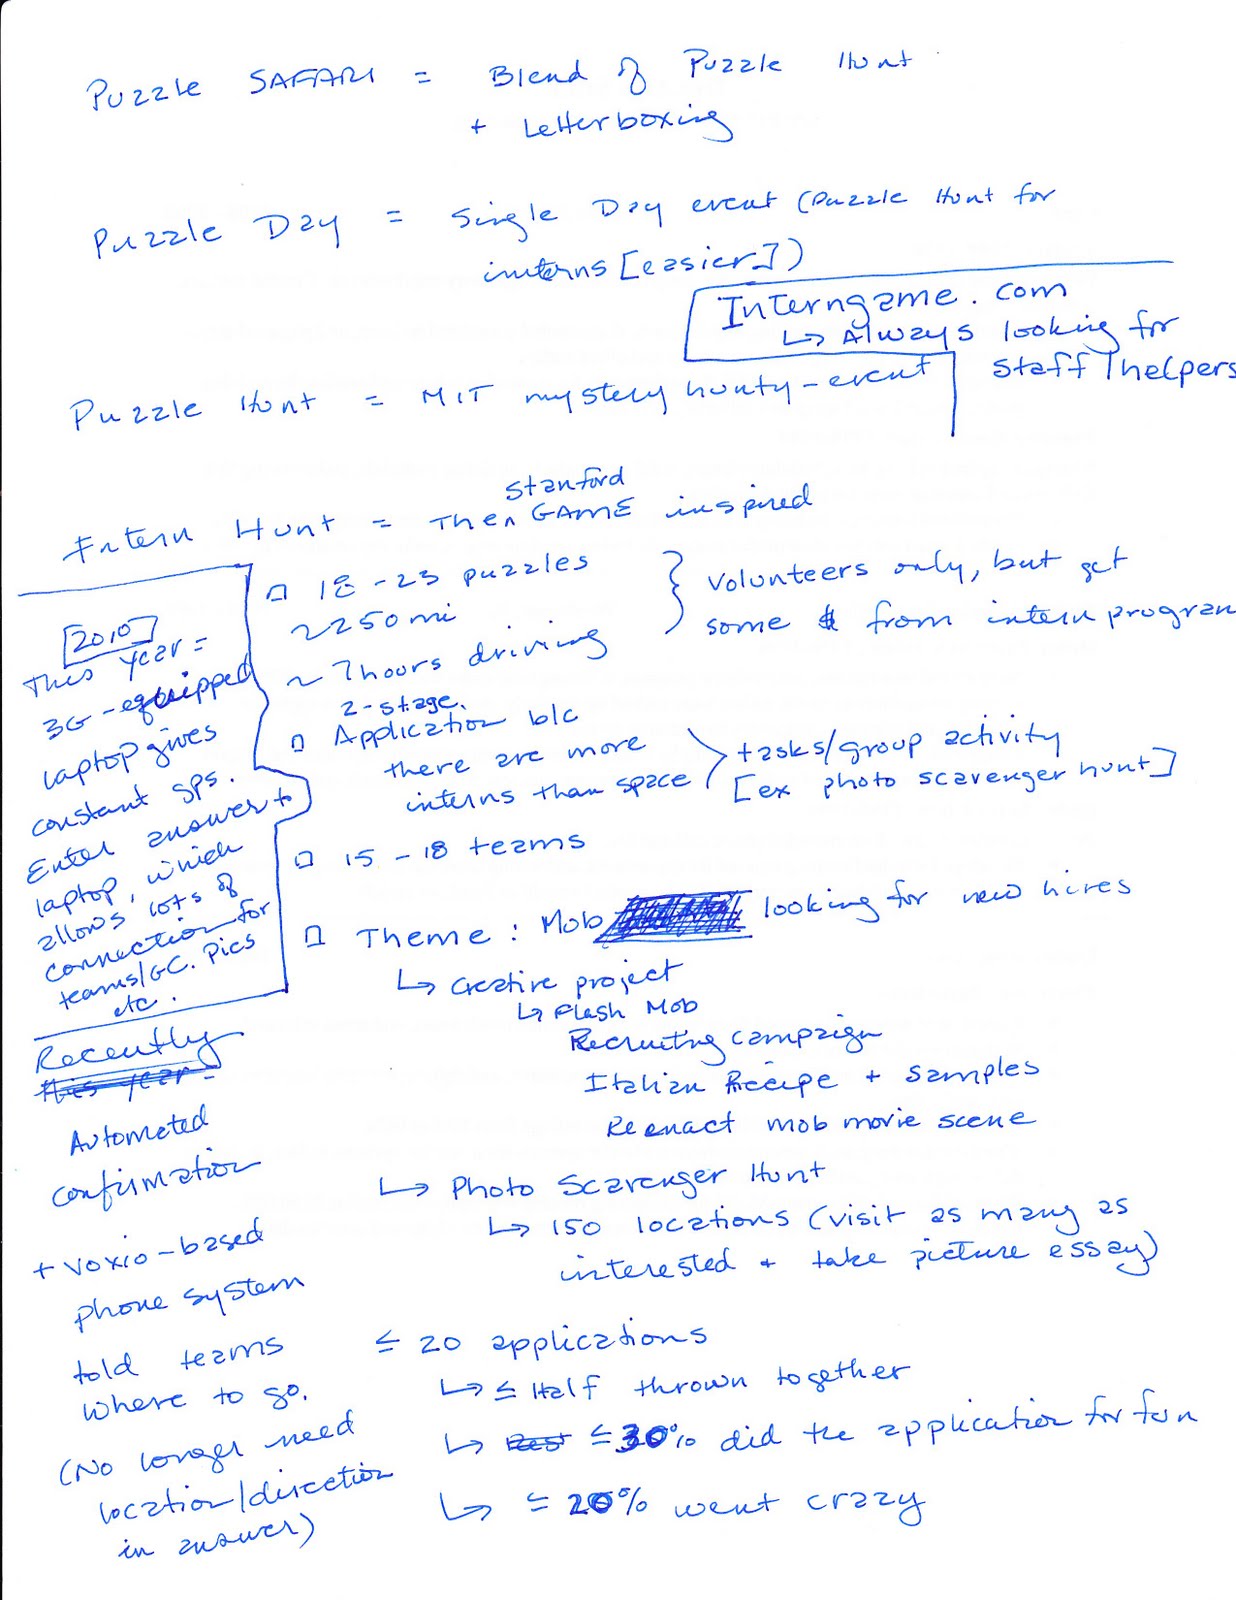 Puzzle SAFARI = Blend of Puzzle Hunt
+ Letterboxing
Puzzle Day = Single Day event (Puzzle Hunt for
interns [easier])
Interngame.com
↳ Always looking for
staff/helpers
Puzzle Hunt = MIT mystery hunty-event
Stanford
Intern Hunt = The ^ GAME inspired
□ 18-23 puzzles
~250mi
~7hours driving
} volunteers only, but get
some $ from intern program
2-stage
□ Application b/c
there are more
interns than space
> tasks/group activity
[ex photo scavenger hunt]
□ 15-18 teams
□ Theme: Mob looking for new hires
↳ Creative project
↳ Flash Mob
Recruiting campaign
Italian Recipe + samples
Reenact mob movie scene
↳ Photo Scavenger Hunt
↳ 150 locations (visit as many as
interested + take picture essay)
≤ 20 applications
↳ ≤ Half thrown together
↳ Rest ≤ 30% did the application for fun
↳ ≤ 20% went crazy
[2010]
This year =
3G-equipped
laptop gives
constant gps.
Enter answer to
laptop, which
allows lots of
connection for
teams/GC. Pics
etc.
Recently
this year =
Automated
confirmation
+ voxio-based
phone system
told teams
where to go.
(No longer need
location/direction
in answer)